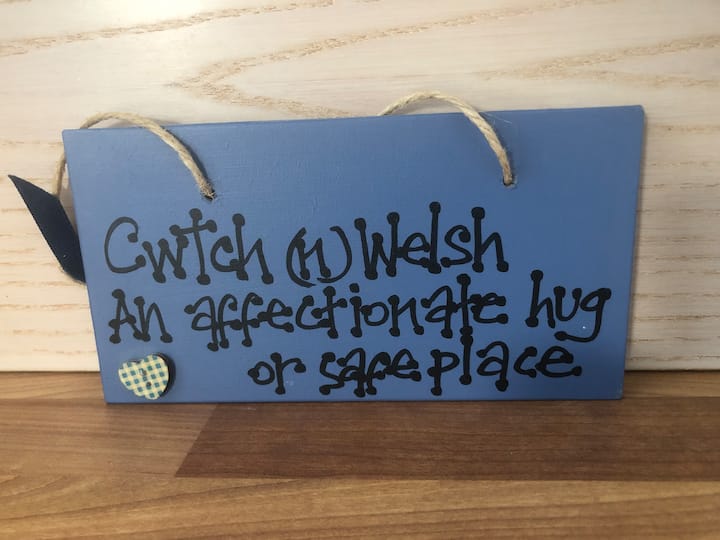 Cwtch (n) Welsh
An affectionate hug
or safe place